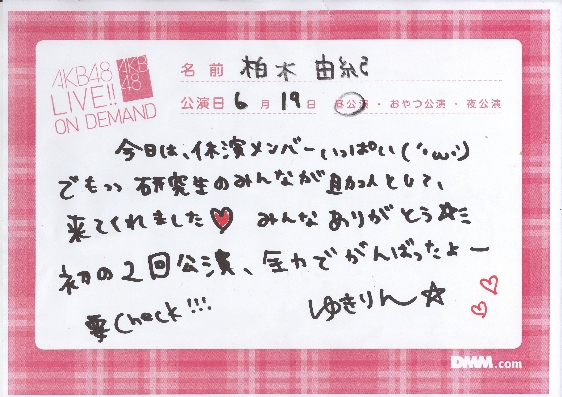 AKB48
LIVE!!
ON DEMAND
AKB
48
名前 柏木由紀
公演日 6月19日 昼公演・おやつ公演・夜公演
今日は、休演メンバーいっぱい(´・ω・`)
でもっっ研究生のみんなが助っ人として、
来てくれました♥ みんなありがとう☆ミ
初の2回公演、全力でがんばったよー
要Check!!!
ゆきりん☆
DMM.com